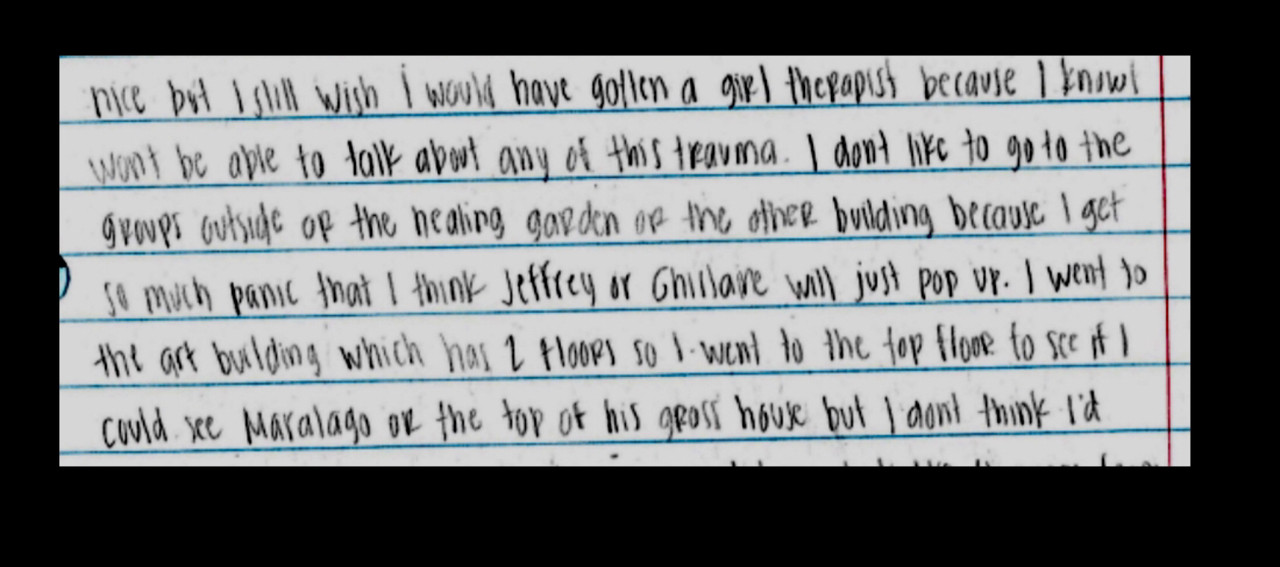 nice but I still wish i would have gotten a girl therapist because I know I
wont be able to talk about any of this trauma. I dont like to go to the
groups outside or the healing garden or the other building because I get
so much panic that I think Jeffrey or Ghislane will just pop up. I went to
the art building which has 2 floors so I went to the top floor to see if I
could see Maralago or the top of his gross house but I dont think I'd